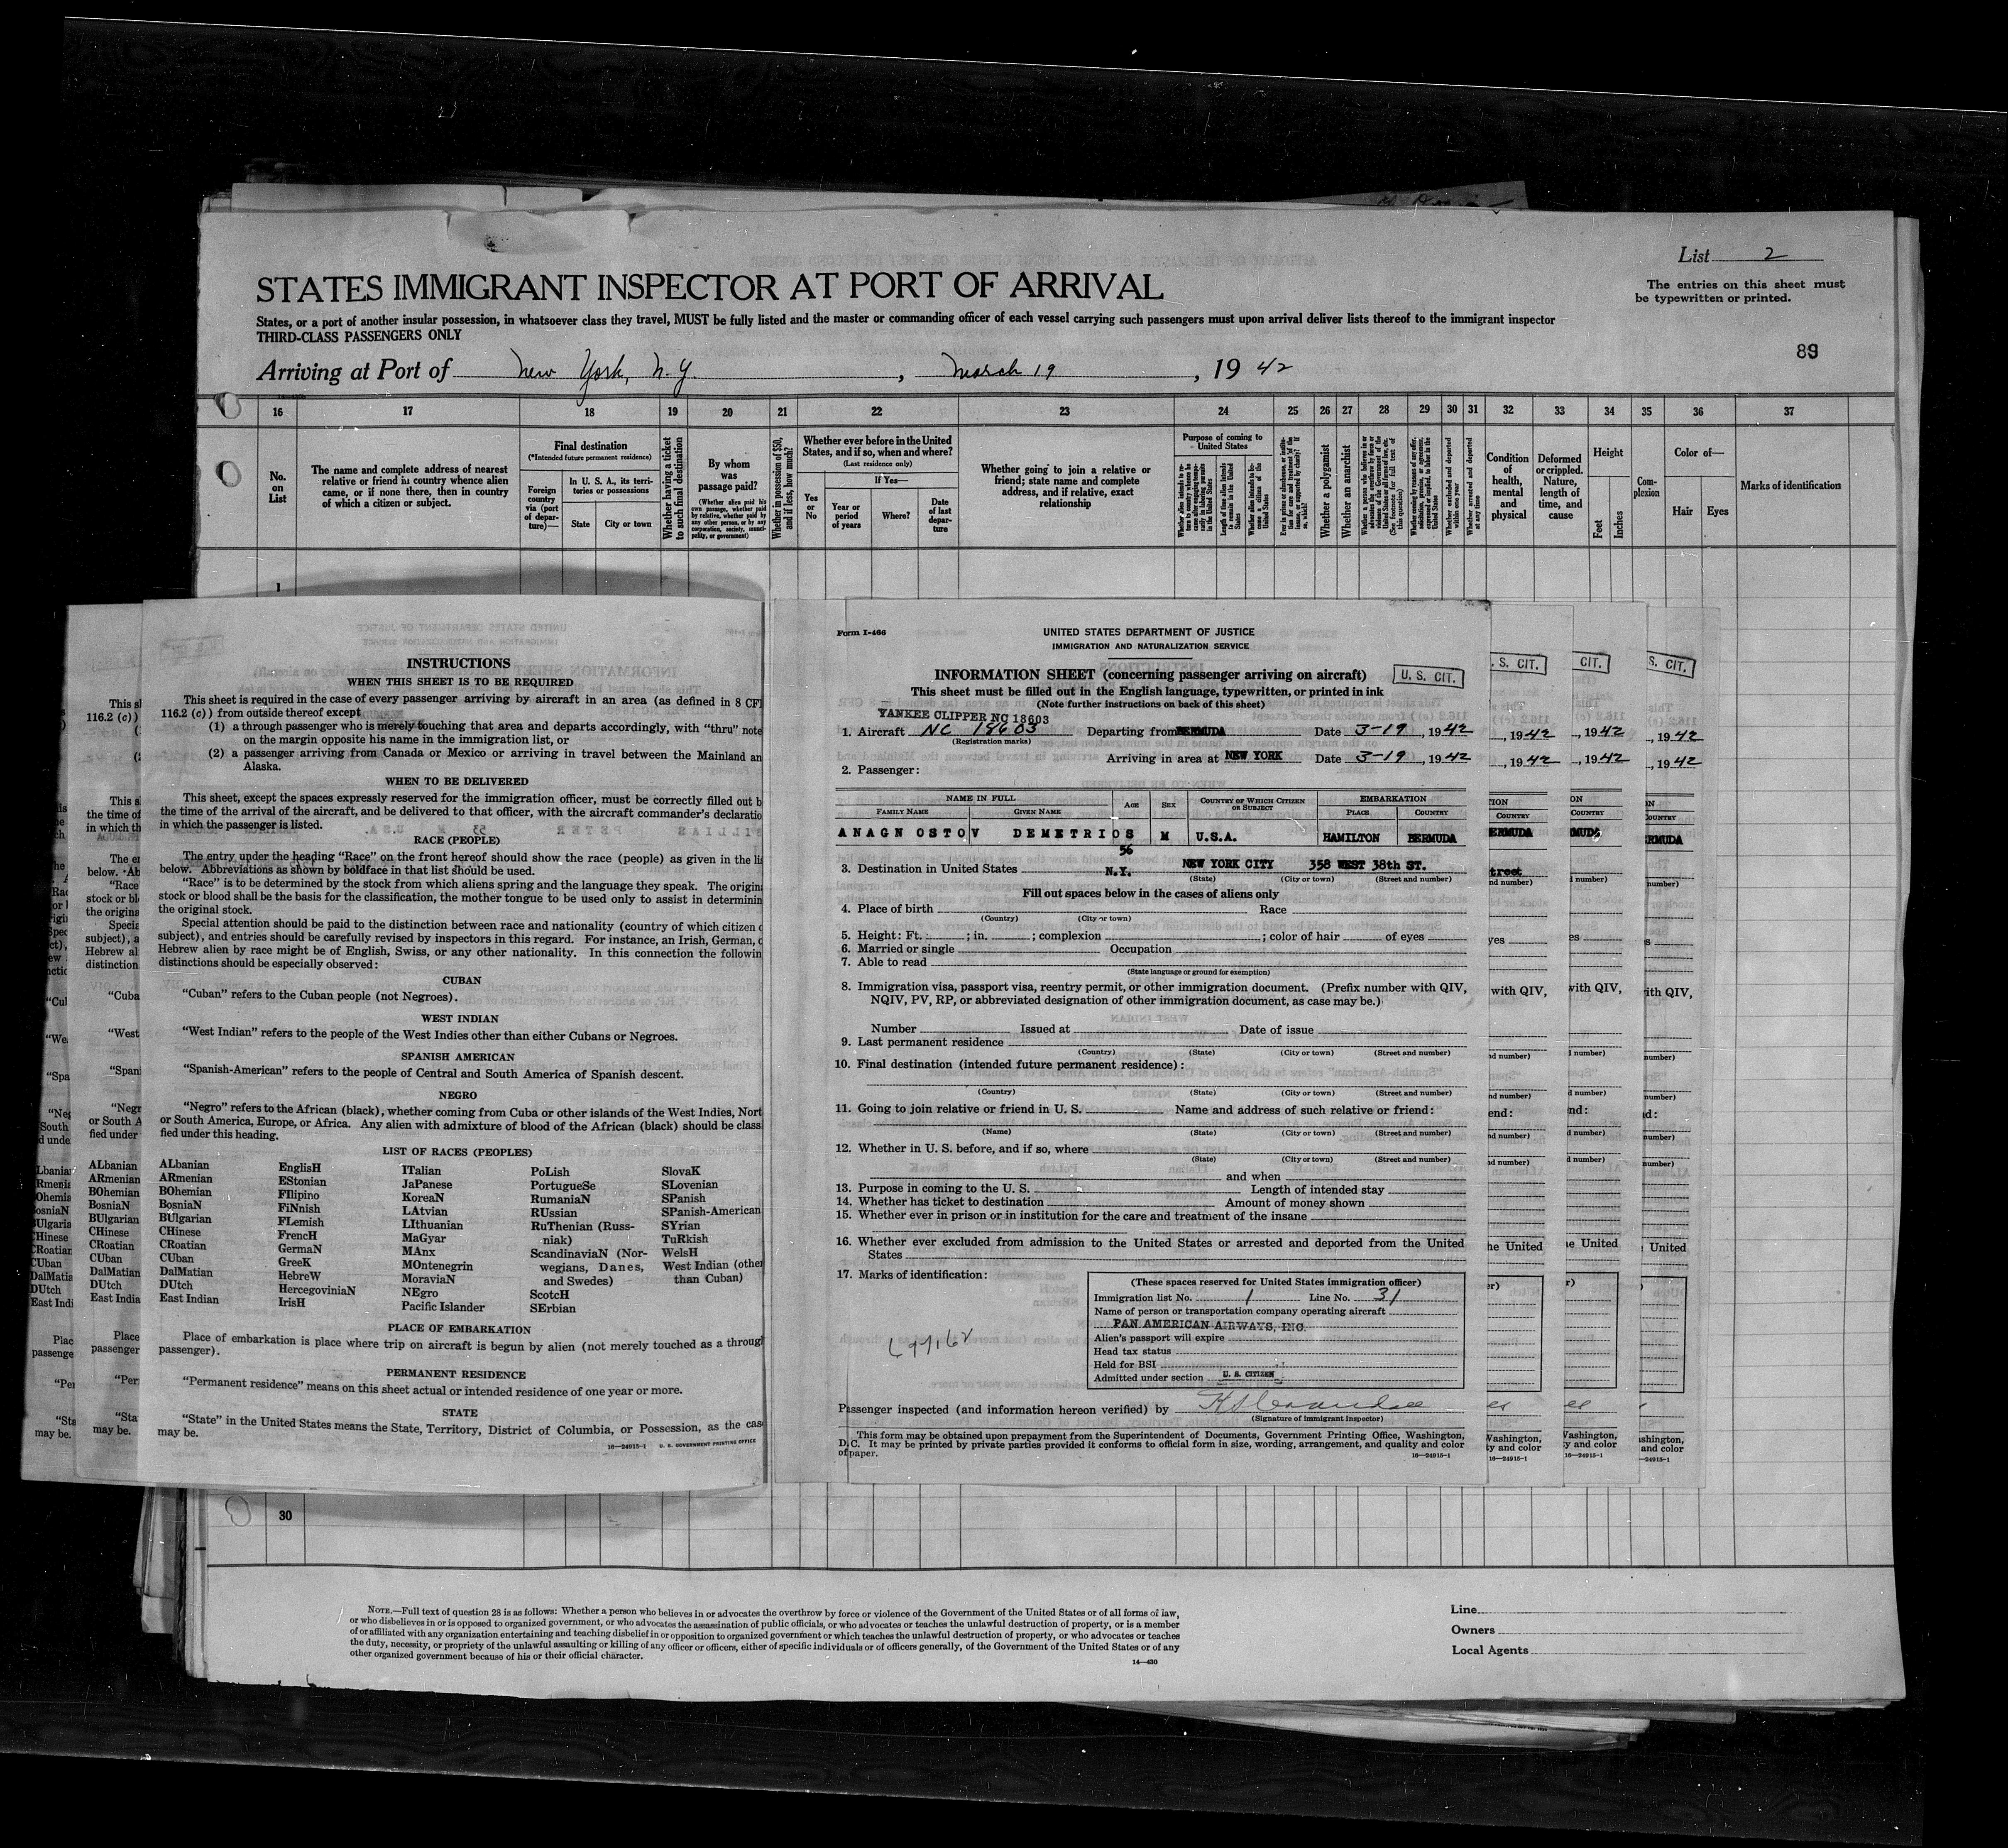 List 2
The entries on this sheet must
be typewritten or printed.
STATES IMMIGRANT INSPECTOR AT PORT OF ARRIVAL
States, or a port of another insular possession, in whatsoever class they travel, MUST be fully listed and the master or commanding officer of each vessel carrying such passengers must upon arrival deliver lists thereof to the immigrant inspector
THIRD-CLASS PASSENGERS ONLY
89
Arriving at Port of New York, N.Y. , March 19 , 1942
16 17 18 19 20 21 22 23 24 25 26 27 28 29 30 31 32 33 34 35 36 37
No. on List
The name and complete address of nearest relative or friend in country whence alien came, or if none there, then in country of which a citizen or subject.
Final destination
(*Intended future permanent residence)
Foreign country via (port of departure)—
In U. S. A., its territories or possessions
State
City or town
Whether having a ticket to such final destination
By whom was passage paid?
(Whether alien paid his own passage, whether paid by relative, whether paid by any other person, or by any corporation, society, municipality, or government)
Whether in possession of $50, and if less, how much?
Whether ever before in the United States, and if so, when and where?
(Last residence only)
Yes or No
If Yes—
Year or period of years
Where?
Date of last departure
Whether going to join a relative or friend; state name and complete address, and if relative, exact relationship
Purpose of coming to United States
Whether a polygamist
Whether an anarchist
Condition of health, mental and physical
Deformed or crippled. Nature, length of time, and cause
Height
Feet
Inches
Complexion
Color of—
Hair
Eyes
Marks of identification
1
INSTRUCTIONS
WHEN THIS SHEET IS TO BE REQUIRED
This sheet is required in the case of every passenger arriving by aircraft in an area (as defined in 8 CF
116.2 (c)) from outside thereof except
(1) a through passenger who is merely touching that area and departs accordingly, with "thru" note
on the margin opposite his name in the immigration list, or
(2) a passenger arriving from Canada or Mexico or arriving in travel between the Mainland an
Alaska.
WHEN TO BE DELIVERED
This sheet, except the spaces expressly reserved for the immigration officer, must be correctly filled out b
the time of the arrival of the aircraft, and be delivered to that officer, with the aircraft commander's declaratio
in which the passenger is listed.
RACE (PEOPLE)
The entry under the heading "Race" on the front hereof should show the race (people) as given in the li
below. Abbreviations as shown by boldface in that list should be used.
"Race" is to be determined by the stock from which aliens spring and the language they speak. The origina
stock or blood shall be the basis for the classification, the mother tongue to be used only to assist in determinin
the original stock.
Special attention should be paid to the distinction between race and nationality (country of which citizen o
subject), and entries should be carefully revised by inspectors in this regard. For instance, an Irish, German, o
Hebrew alien by race might be of English, Swiss, or any other nationality. In this connection the followin
distinctions should be especially observed:
CUBAN
"Cuban" refers to the Cuban people (not Negroes).
WEST INDIAN
"West Indian" refers to the people of the West Indies other than either Cubans or Negroes.
SPANISH AMERICAN
"Spanish-American" refers to the people of Central and South America of Spanish descent.
NEGRO
"Negro" refers to the African (black), whether coming from Cuba or other islands of the West Indies, Nort
or South America, Europe, or Africa. Any alien with admixture of blood of the African (black) should be class
fied under this heading.
LIST OF RACES (PEOPLES)
ALbanian
ARmenian
BOhemian
BosniaN
BUlgarian
CHinese
CRoatian
CUban
DalMatian
DUtch
East Indian
EnglisH
EStonian
FIlipino
FiNnish
FLemish
FrencH
GermaN
GreeK
HebreW
HercegoviniaN
IrisH
ITalian
JaPanese
KoreaN
LAtvian
LIthuanian
MaGyar
MAnx
MOntenegrin
MoraviaN
NEgro
Pacific Islander
PoLish
PortugueSe
RumaniaN
RUssian
RuThenian (Russ-
niak)
ScandinaviaN (Nor-
wegians, Danes,
and Swedes)
ScotcH
SErbian
SlovaK
SLovenian
SPanish
SPanish-American
SYrian
TuRkish
WelsH
West Indian (other
than Cuban)
PLACE OF EMBARKATION
Place of embarkation is place where trip on aircraft is begun by alien (not merely touched as a throug
passenger).
PERMANENT RESIDENCE
"Permanent residence" means on this sheet actual or intended residence of one year or more.
STATE
"State" in the United States means the State, Territory, District of Columbia, or Possession, as the cas
may be.
16—24915-1 U. S. GOVERNMENT PRINTING OFFICE
Form I-466
UNITED STATES DEPARTMENT OF JUSTICE
IMMIGRATION AND NATURALIZATION SERVICE
INFORMATION SHEET (concerning passenger arriving on aircraft)
U. S. CIT.
This sheet must be filled out in the English language, typewritten, or printed in ink
(Note further instructions on back of this sheet)
YANKEE CLIPPER NC 18603
1. Aircraft NC 18603 Departing from BERMUDA Date 3-19, 1942
(Registration marks)
Arriving in area at NEW YORK Date 3-19, 1942
2. Passenger:
NAME IN FULL
FAMILY NAME GIVEN NAME AGE SEX COUNTRY OF WHICH CITIZEN OR SUBJECT EMBARKATION PLACE COUNTRY
ANAGNOSTOV DEMETRIOS M U.S.A. HAMILTON BERMUDA
56
3. Destination in United States N.Y. NEW YORK CITY 358 WEST 38th ST.
(State) (City or town) (Street and number)
Fill out spaces below in the cases of aliens only
4. Place of birth Race
(Country) (City or town)
5. Height: Ft. ; in. ; complexion ; color of hair of eyes
6. Married or single Occupation
7. Able to read
(State language or ground for exemption)
8. Immigration visa, passport visa, reentry permit, or other immigration document. (Prefix number with QIV,
NQIV, PV, RP, or abbreviated designation of other immigration document, as case may be.)
Number Issued at Date of issue
9. Last permanent residence
(Country) (State) (City or town) (Street and number)
10. Final destination (intended future permanent residence):
(Country) (State) (City or town) (Street and number)
11. Going to join relative or friend in U. S. Name and address of such relative or friend:
(Name) (State) (City or town) (Street and number)
12. Whether in U. S. before, and if so, where
(State) (City or town) (Street and number)
and when
13. Purpose in coming to the U. S. Length of intended stay
14. Whether has ticket to destination Amount of money shown
15. Whether ever in prison or in institution for the care and treatment of the insane
16. Whether ever excluded from admission to the United States or arrested and deported from the United
States
17. Marks of identification:
(These spaces reserved for United States immigration officer)
Immigration list No. 1 Line No. 31
Name of person or transportation company operating aircraft
PAN AMERICAN AIRWAYS, INC.
Alien's passport will expire
Head tax status
Held for BSI
Admitted under section U. S. CITIZEN
Passenger inspected (and information hereon verified) by
(Signature of immigrant inspector)
This form may be obtained upon prepayment from the Superintendent of Documents, Government Printing Office, Washington,
D. C. It may be printed by private parties provided it conforms to official form in size, wording, arrangement, and quality and color
of paper.
16—24915-1
30
NOTE.—Full text of question 28 is as follows: Whether a person who believes in or advocates the overthrow by force or violence of the Government of the United States or of all forms of law,
or who disbelieves in or is opposed to organized government, or who advocates the assassination of public officials, or who advocates or teaches the unlawful destruction of property, or is a member
of or affiliated with any organization entertaining and teaching disbelief in or opposition to organized government or which teaches the unlawful destruction of property, or who advocates or teaches
the duty, necessity, or propriety of the unlawful assaulting or killing of any officer or officers, either of specific individuals or of officers generally, of the Government of the United States or of any
other organized government because of his or their official character.
14—430
Line
Owners
Local Agents